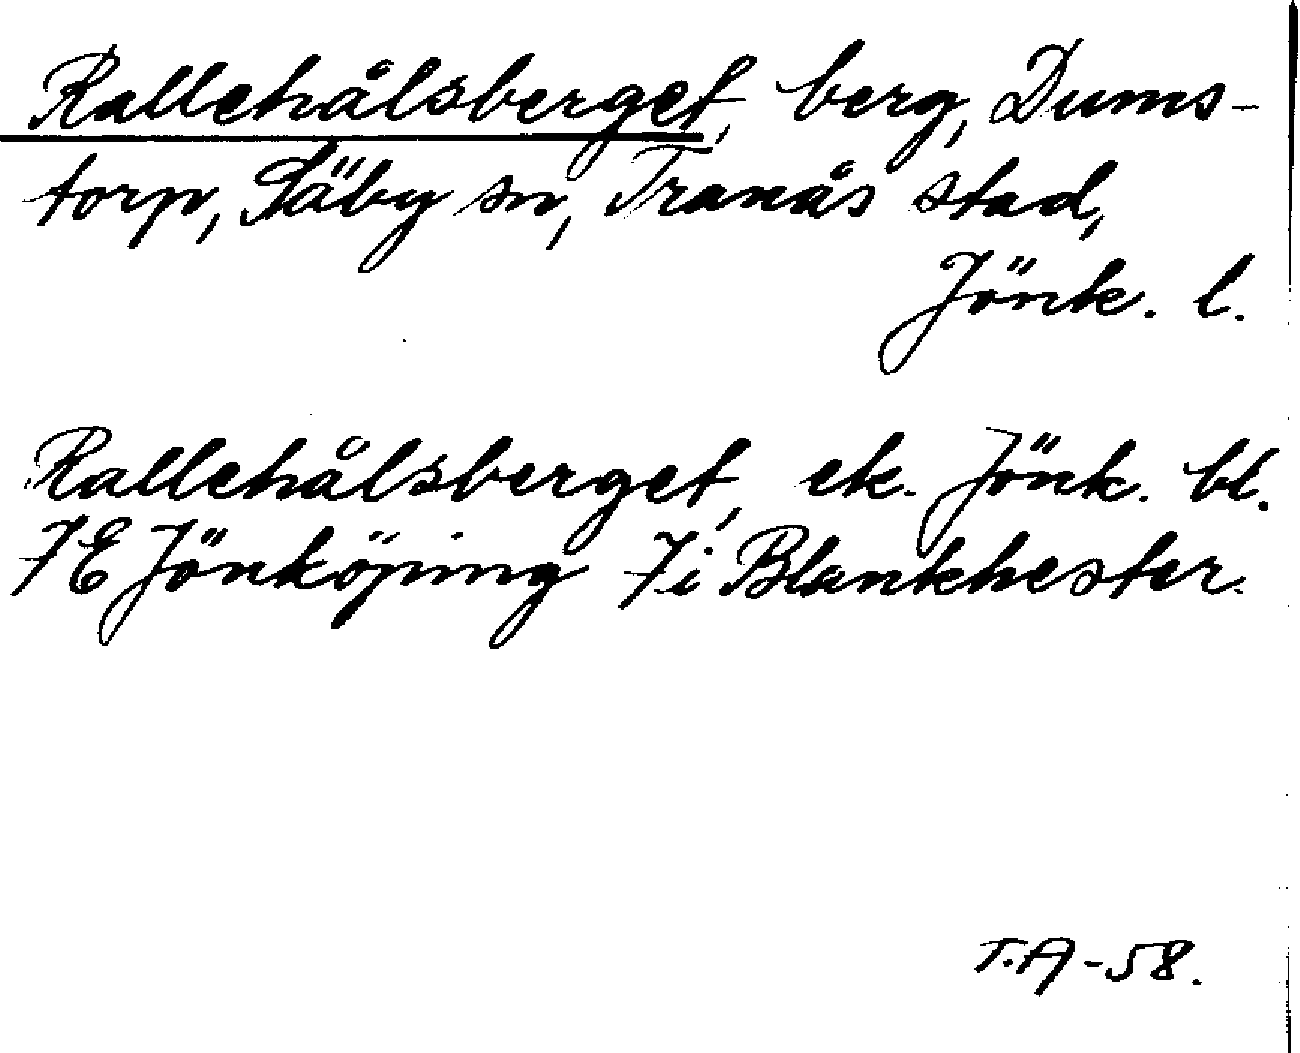 Rallehålsberget, berg, Dums-
torp, Säby sn, Tranås stad,
Jönk. l.
Rallehålsberget, ek. Jönk. bl.
7E Jönköping 7i Blankhester.
T.A-58.